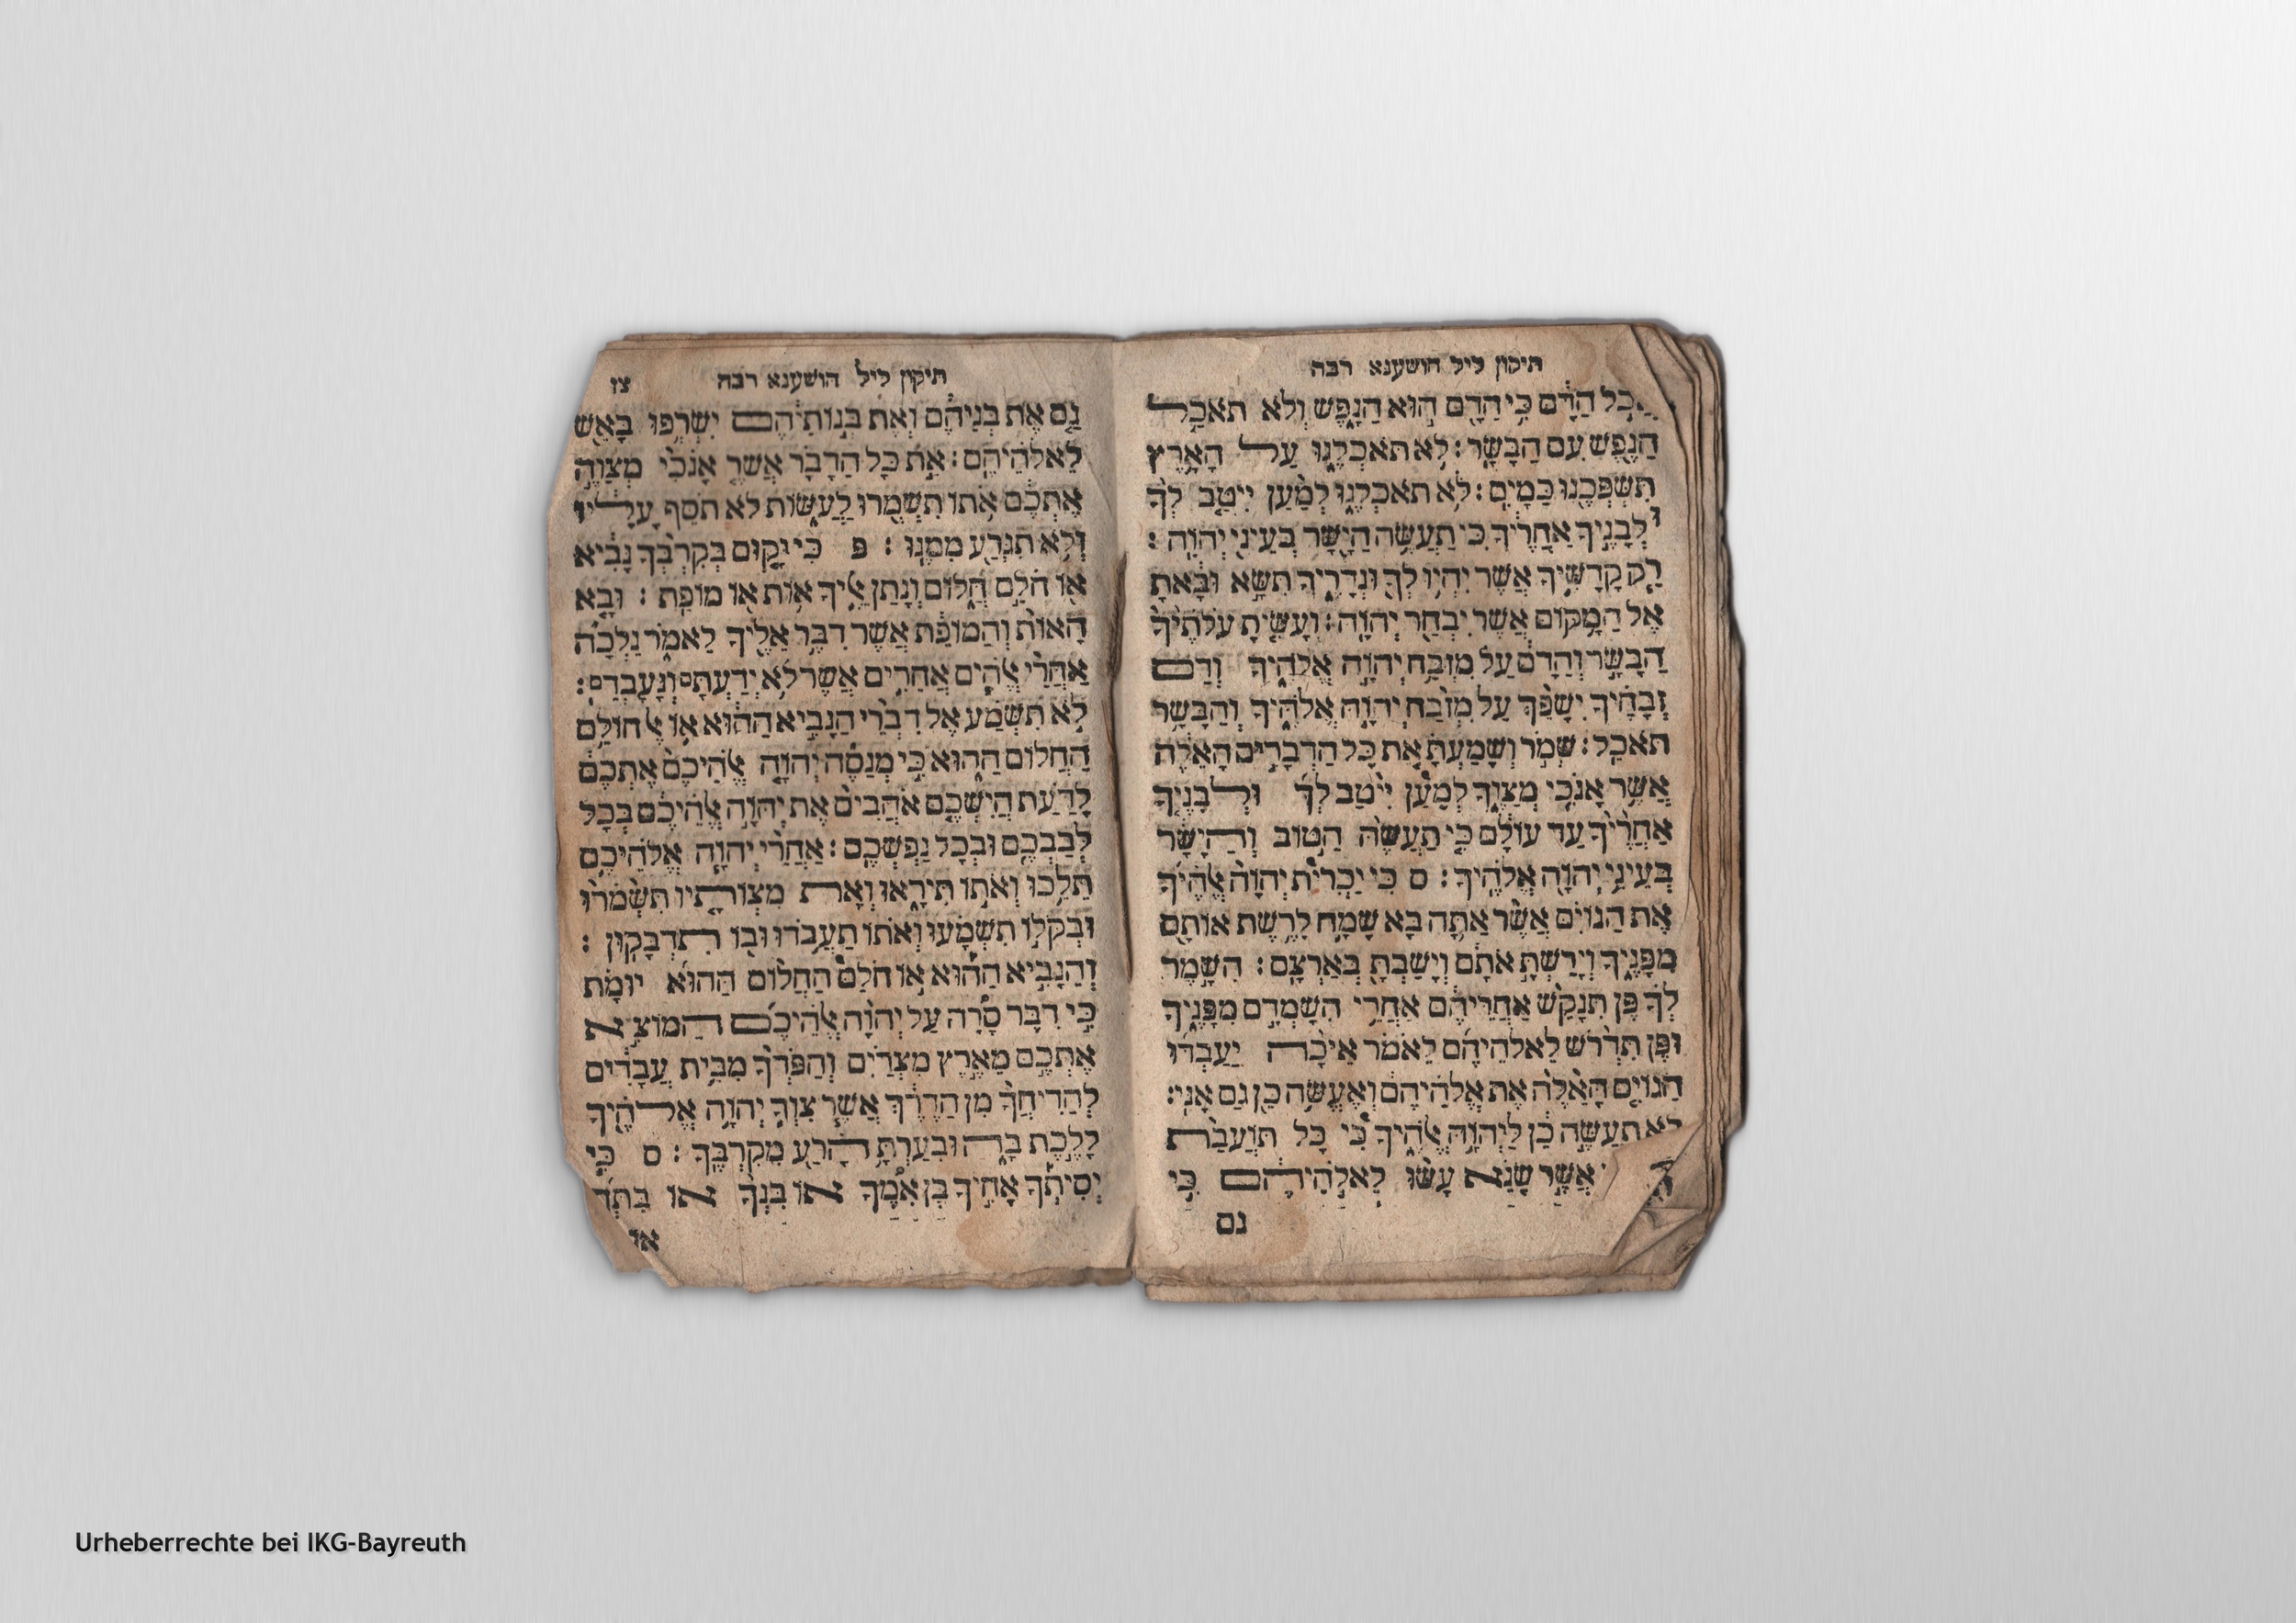 תיקון ליל הושענא רבה
אֲכֹל הַדָּם כִּי הַדָּם הוּא הַנָּפֶשׁ וְלֹא תֹאכַל
הַנֶּפֶשׁ עִם הַבָּשָׂר : לֹא תֹאכְלֶנּוּ עַל הָאָרֶץ
תִּשְׁפְּכֶנּוּ כַּמָּיִם : לֹא תֹאכְלֶנּוּ לְמַעַן יִיטַב לְךָ
וּלְבָנֶיךָ אַחֲרֶיךָ כִּי תַעֲשֶׂה הַיָּשָׁר בְּעֵינֵי יְהוָה :
רַק קָדָשֶׁיךָ אֲשֶׁר יִהְיוּ לְךָ וּנְדָרֶיךָ תִּשָּׂא וּבָאתָ
אֶל הַמָּקוֹם אֲשֶׁר יִבְחַר יְהוָה : וְעָשִׂיתָ עֹלֹתֶיךָ
הַבָּשָׂר וְהַדָּם עַל מִזְבַּח יְהוָה אֱלֹהֶיךָ וְדַם
זְבָחֶיךָ יִשָּׁפֵךְ עַל מִזְבַּח יְהוָה אֱלֹהֶיךָ וְהַבָּשָׂר
תֹּאכֵל : שְׁמֹר וְשָׁמַעְתָּ אֵת כָּל הַדְּבָרִים הָאֵלֶּה
אֲשֶׁר אָנֹכִי מְצַוֶּךָּ לְמַעַן יִיטַב לְךָ וּלְבָנֶיךָ
אַחֲרֶיךָ עַד עוֹלָם כִּי תַעֲשֶׂה הַטּוֹב וְהַיָּשָׁר
בְּעֵינֵי יְהוָה אֱלֹהֶיךָ : ס כִּי יַכְרִית יְהוָה אֱלֹהֶיךָ
אֶת הַגּוֹיִם אֲשֶׁר אַתָּה בָא שָׁמָּה לָרֶשֶׁת אוֹתָם
מִפָּנֶיךָ וְיָרַשְׁתָּ אֹתָם וְיָשַׁבְתָּ בְּאַרְצָם : הִשָּׁמֶר
לְךָ פֶּן תִּנָּקֵשׁ אַחֲרֵיהֶם אַחֲרֵי הִשָּׁמְדָם מִפָּנֶיךָ
וּפֶן תִּדְרֹשׁ לֵאלֹהֵיהֶם לֵאמֹר אֵיכָה יַעַבְדוּ
הַגּוֹיִם הָאֵלֶּה אֶת אֱלֹהֵיהֶם וְאֶעֱשֶׂה כֵּן גַּם אָנִי :
לֹא תַעֲשֶׂה כֵן לַיהוָה אֱלֹהֶיךָ כִּי כָּל תּוֹעֲבַת
אֲשֶׁר שָׂנֵא עָשׂוּ לֵאלֹהֵיהֶם כִּי
גם
תיקון ליל הושענא רבה צז
גַם אֶת בְּנֵיהֶם וְאֶת בְּנוֹתֵיהֶם יִשְׂרְפוּ בָאֵשׁ
לֵאלֹהֵיהֶם : אֵת כָּל הַדָּבָר אֲשֶׁר אָנֹכִי מְצַוֶּה
אֶתְכֶם אֹתוֹ תִשְׁמְרוּ לַעֲשׂוֹת לֹא תֹסֵף עָלָיו
וְלֹא תִגְרַע מִמֶּנּוּ : פ כִּי יָקוּם בְּקִרְבְּךָ נָבִיא
אוֹ חֹלֵם חֲלוֹם וְנָתַן אֵלֶיךָ אוֹת אוֹ מוֹפֵת : וּבָא
הָאוֹת וְהַמּוֹפֵת אֲשֶׁר דִּבֶּר אֵלֶיךָ לֵאמֹר נֵלְכָה
אַחֲרֵי אֱלֹהִים אֲחֵרִים אֲשֶׁר לֹא יְדַעְתָּם וְנָעָבְדֵם :
לֹא תִשְׁמַע אֶל דִּבְרֵי הַנָּבִיא הַהוּא אוֹ אֶל חוֹלֵם
הַחֲלוֹם הַהוּא כִּי מְנַסֶּה יְהוָה אֱלֹהֵיכֶם אֶתְכֶם
לָדַעַת הֲיִשְׁכֶם אֹהֲבִים אֶת יְהוָה אֱלֹהֵיכֶם בְּכָל
לְבַבְכֶם וּבְכָל נַפְשְׁכֶם : אַחֲרֵי יְהוָה אֱלֹהֵיכֶם
תֵּלֵכוּ וְאֹתוֹ תִירָאוּ וְאֶת מִצְוֹתָיו תִּשְׁמֹרוּ
וּבְקֹלוֹ תִשְׁמָעוּ וְאֹתוֹ תַעֲבֹדוּ וּבוֹ תִדְבָּקוּן :
וְהַנָּבִיא הַהוּא אוֹ חֹלֵם הַחֲלוֹם הַהוּא יוּמָת
כִּי דִבֶּר סָרָה עַל יְהוָה אֱלֹהֵיכֶם הַמּוֹצִיא
אֶתְכֶם מֵאֶרֶץ מִצְרַיִם וְהַפֹּדְךָ מִבֵּית עֲבָדִים
לְהַדִּיחֲךָ מִן הַדֶּרֶךְ אֲשֶׁר צִוְּךָ יְהוָה אֱלֹהֶיךָ
לָלֶכֶת בָּהּ וּבִעַרְתָּ הָרָע מִקִּרְבֶּךָ : ס כִּי
יְסִיתְךָ אָחִיךָ בֶן אִמֶּךָ אוֹ בִנְךָ אוֹ בִתְּךָ
או
Urheberrechte bei IKG-Bayreuth